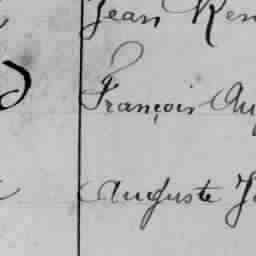 Jean Ren
François Au
Auguste J